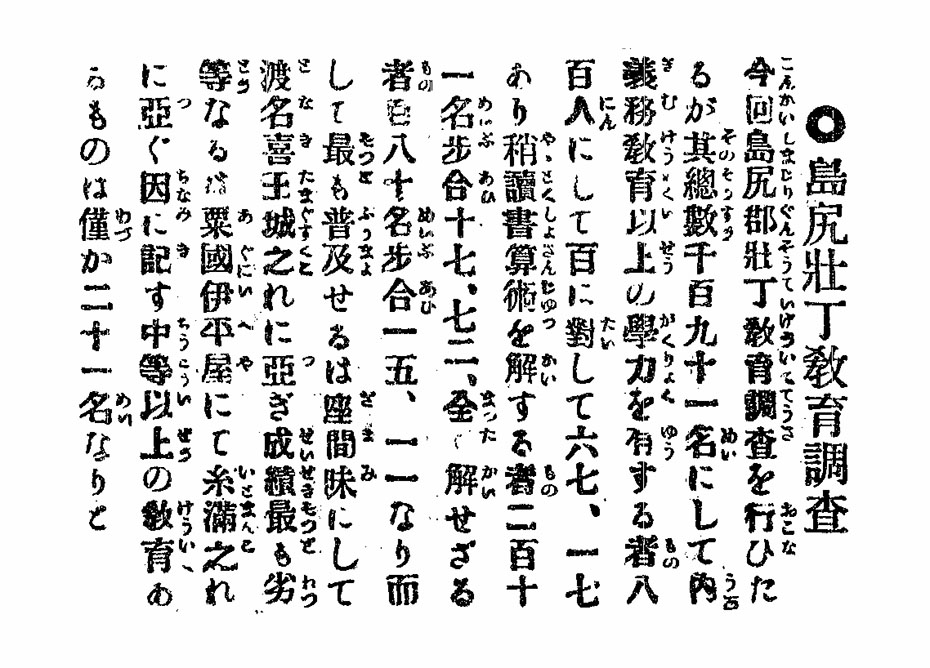 ◉島尻壯丁敎育調査
今回島尻郡壯丁敎育調査を行ひた
るが其總數千百九十一名にして內
義務敎育以上の學力を有する者八
百人にして百に對して六七、一七
あり稍讀書算術を解する者二百十
一名步合十七、七二、全く解せざる
者百八十名步合一五、一一なり而
して最も普及せるは座間味にして
渡名喜玉城之れに亞ぎ成績最も劣
等なるは粟國伊平屋にて糸滿之れ
に亞ぐ因に記す中等以上の敎育あ
るものは僅か二十一名なりと